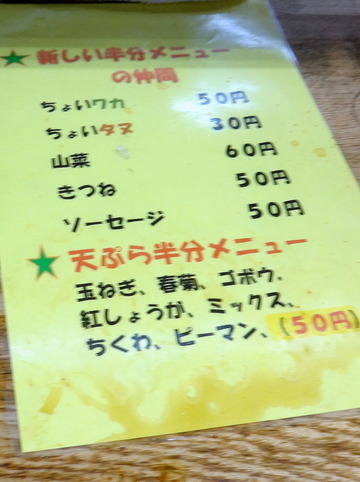 ★ 新しい半分メニュー
の仲間
ちょいワカ 50円
ちょいタヌ 30円
山菜 60円
きつね 50円
ソーセージ 50円
★ 天ぷら半分メニュー
玉ねぎ、春菊、ゴボウ、
紅しょうが、ミックス、
ちくわ、ピーマン、(50円)